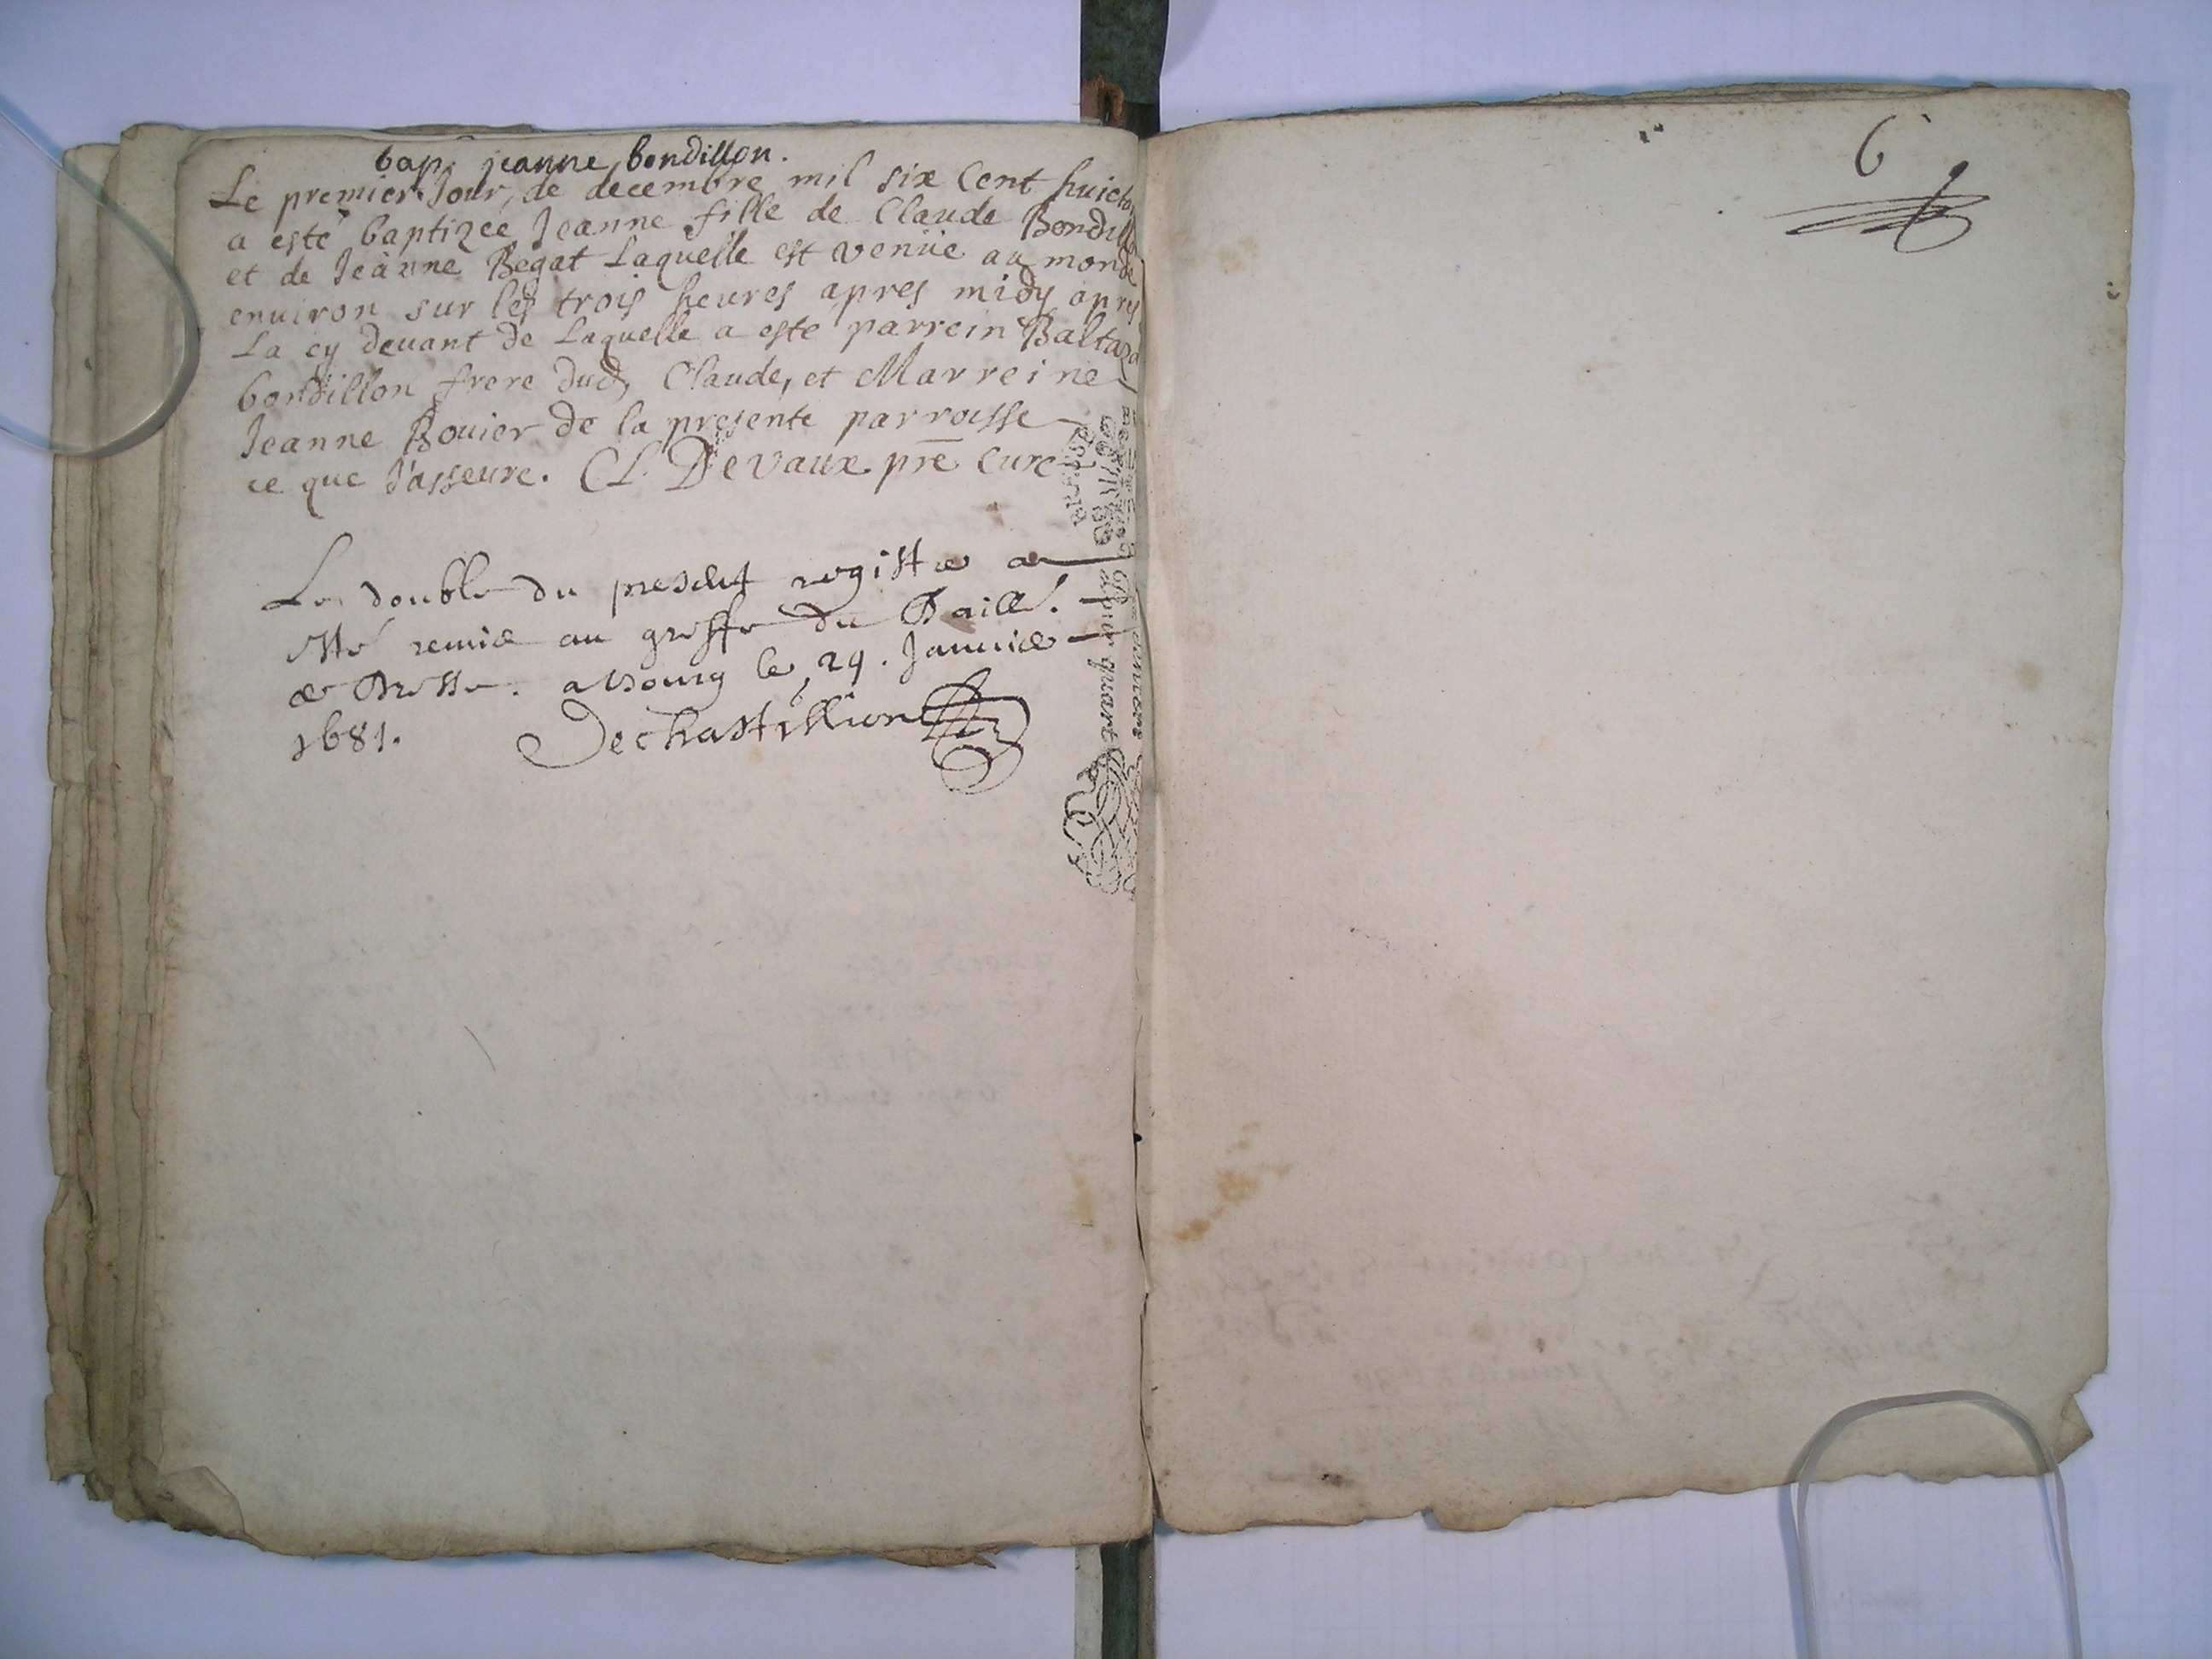 bap. jeanne bondillon.
Le premier Jour, de decembre mil six Cent huicta
a esté baptizée Jeanne fille de Claude Bondill
et de Jeanne Begat Laquelle est venüe au monde
enuiron sur les trois heures apres midy apres
La cy deuant de Laquelle a este parrein Baltaza
bondillon frere dud, Claude, et Marreine
Jeanne Bouier de la presente parroisse
ce que J'asseure. Cl. Devaux pre Curé
Le double du present registre a
esté remis au greffe du Baill.
de Bresse. a bourg le, 29. Januier
1681. Dechastillion
quart
6